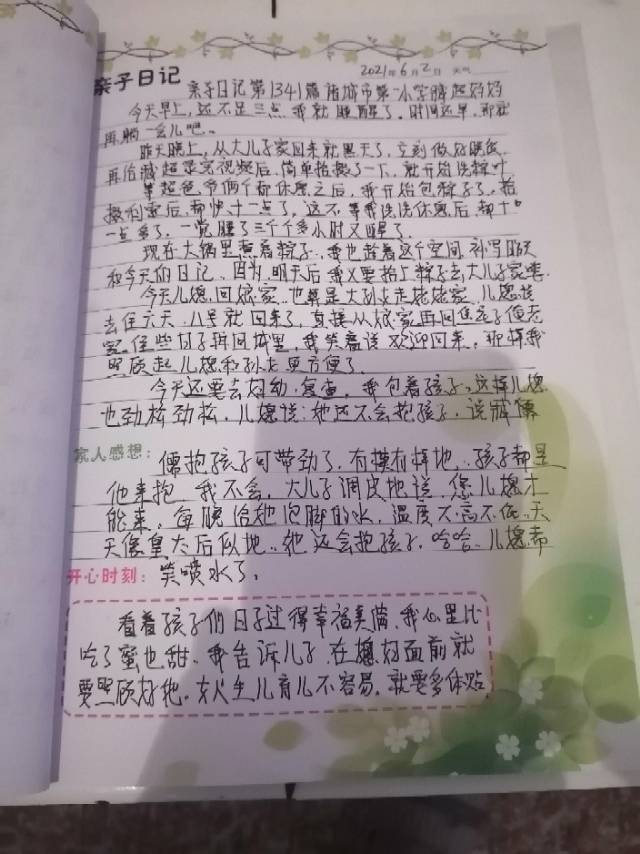 亲子日记 2021年6月2日 天气
亲子日记第1341篇诸城市第一小学滕超妈妈
今天早上，还不足三点，我就睡醒了，时间还早，那就
再躺一会儿吧。
昨天晚上，从大儿子家回来就黑天了，立刻做好晚饭，
再给滕超录完视频后，简单拾掇了一下，就开始洗粽叶
等超爸爷俩个都休息之后，我开始包粽子了，拾
掇利索后，都快十一点了，这不，等我洗洗休息后，都十
一点多了，一觉睡了三个个多小时又醒了。
现在大锅里煮着粽子，我也趁着这个空间，补写昨天
和今天的日记，因为，明天后我又要拾上粽子去大儿子家哩。
今天儿媳，回娘家，也算是大孙女走姥姥家，儿媳说
去住六天，八号就回来了，直接从娘家再回
家住些日子再回城里，我笑着说欢迎回来，那样我
照顾起儿媳和孙女更方便了。
今天还要去妇幼，复查，我包着孩子，这样儿媳
也劲松劲松，儿媳说：她还不会抱孩子，说
家人感想： 抱孩子可带劲了，有模有样地，孩子都是
他来抱，我不会，大儿子调皮地说，您儿媳才
能来，每晚给她泡脚的水，温度不高不低，天
天像皇太后似地，她还会抱孩子，哈哈，儿媳都
开心时刻： 笑喷水了。
看着孩子们日子过得幸福美满，我心里比
吃了蜜也甜，我告诉儿子，在媳妇面前就
要照顾好她，女人生儿育儿不容易，就要多体贴